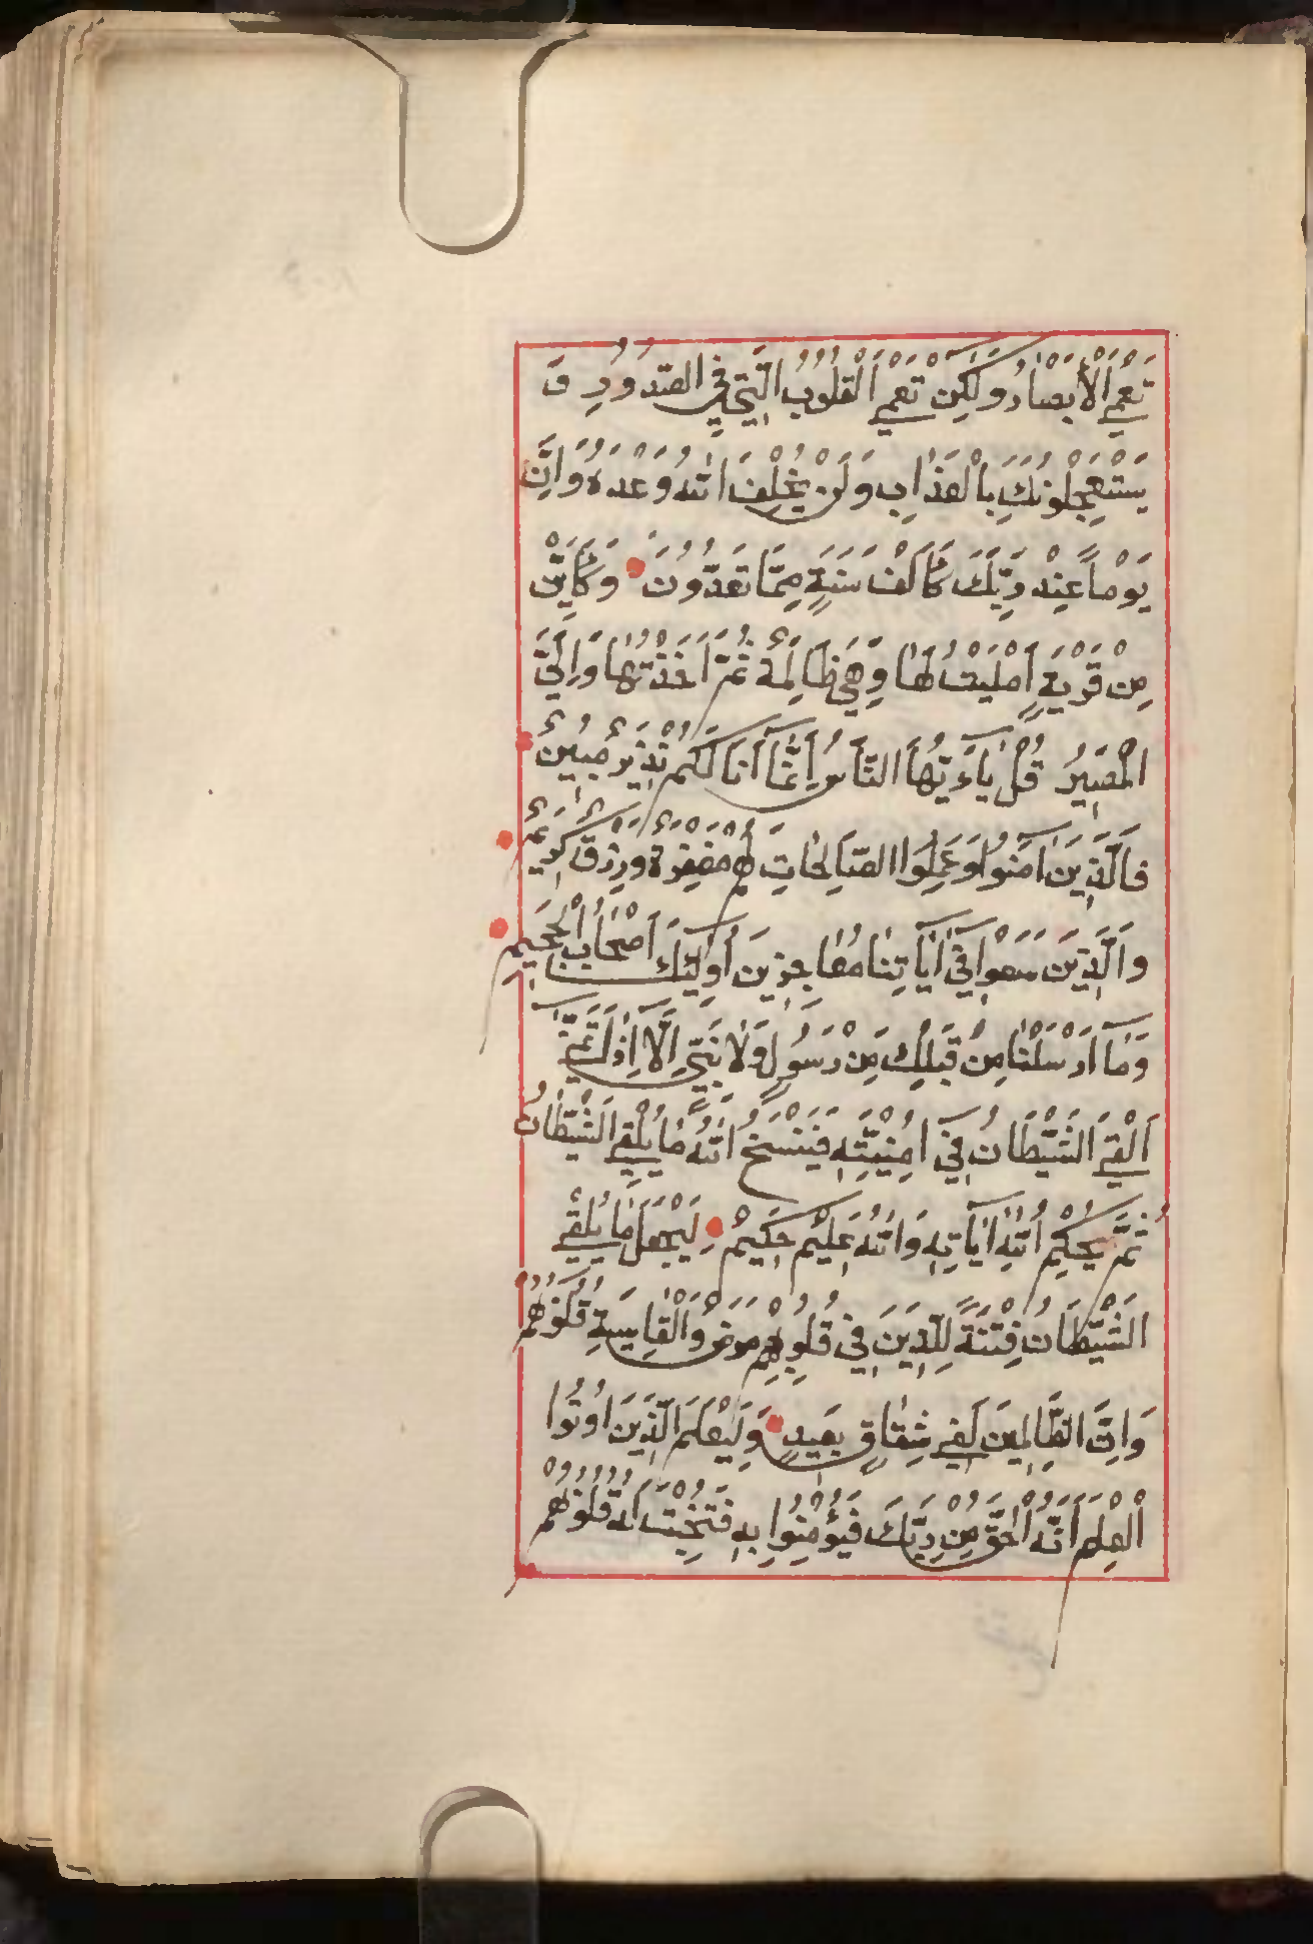 تَعْمَي الْأَبْصَارُ وَلَكِنْ تَعْمَي الْقُلُوبُ الَّتِي فِي الصُّدُورِ وَ
يَسْتَعْجِلُونَكَ بِالْعَذَابِ وَلَنْ يُخْلِفَ اللَّهُ وَعْدَهُ وَإِنَّ
يَوْمًا عِنْدَ رَبِّكَ كَأَلْفِ سَنَةٍ مِمَّا تَعُدُّونَ وَكَأَيِّنْ
مِنْ قَرْيَةٍ أَمْلَيْتُ لَهَا وَهِيَ ظَالِمَةٌ ثُمَّ أَخَذْتُهَا وَإِلَيَّ
الْمَصِيرُ قُلْ يَاءَيُّهَا النَّاسُ إِنَّمَا أَنَا لَكُمْ نَذِيرٌ مُبِينٌ
فَالَّذِينَ آمَنُوا وَعَمِلُوا الصَّالِحَاتِ لَهُمْ مَغْفِرَةٌ وَرِزْقٌ كَرِيمٌ
وَالَّذِينَ سَعَوْا فِي آيَاتِنَا مُعَاجِزِينَ أُولَئِكَ أَصْحَابُ الْجَحِيمِ
وَمَا أَرْسَلْنَا مِنْ قَبْلِكَ مِنْ رَسُولٍ وَلَا نَبِيٍّ إِلَّا إِذَا تَمَنَّي
أَلْقَي الشَّيْطَانُ فِي أُمْنِيَّتِهِ فَيَنْسَخُ اللَّهُ مَا يُلْقِي الشَّيْطَانُ
ثُمَّ يُحْكِمُ اللَّهُ آيَاتِهِ وَاللَّهُ عَلِيمٌ حَكِيمٌ لِيَجْعَلَ مَا يُلْقِي
الشَّيْطَانُ فِتْنَةً لِلَّذِينَ فِي قُلُوبِهِمْ مَرَضٌ وَالْقَاسِيَةِ قُلُوبُهُمْ
وَإِنَّ الظَّالِمِينَ لَفِي شِقَاقٍ بَعِيدٍ وَلِيَعْلَمَ الَّذِينَ أُوتُوا
الْعِلْمَ أَنَّهُ الْحَقُّ مِنْ رَبِّكَ فَيُؤْمِنُوا بِهِ فَتُخْبِتَ لَهُ قُلُوبُهُمْ